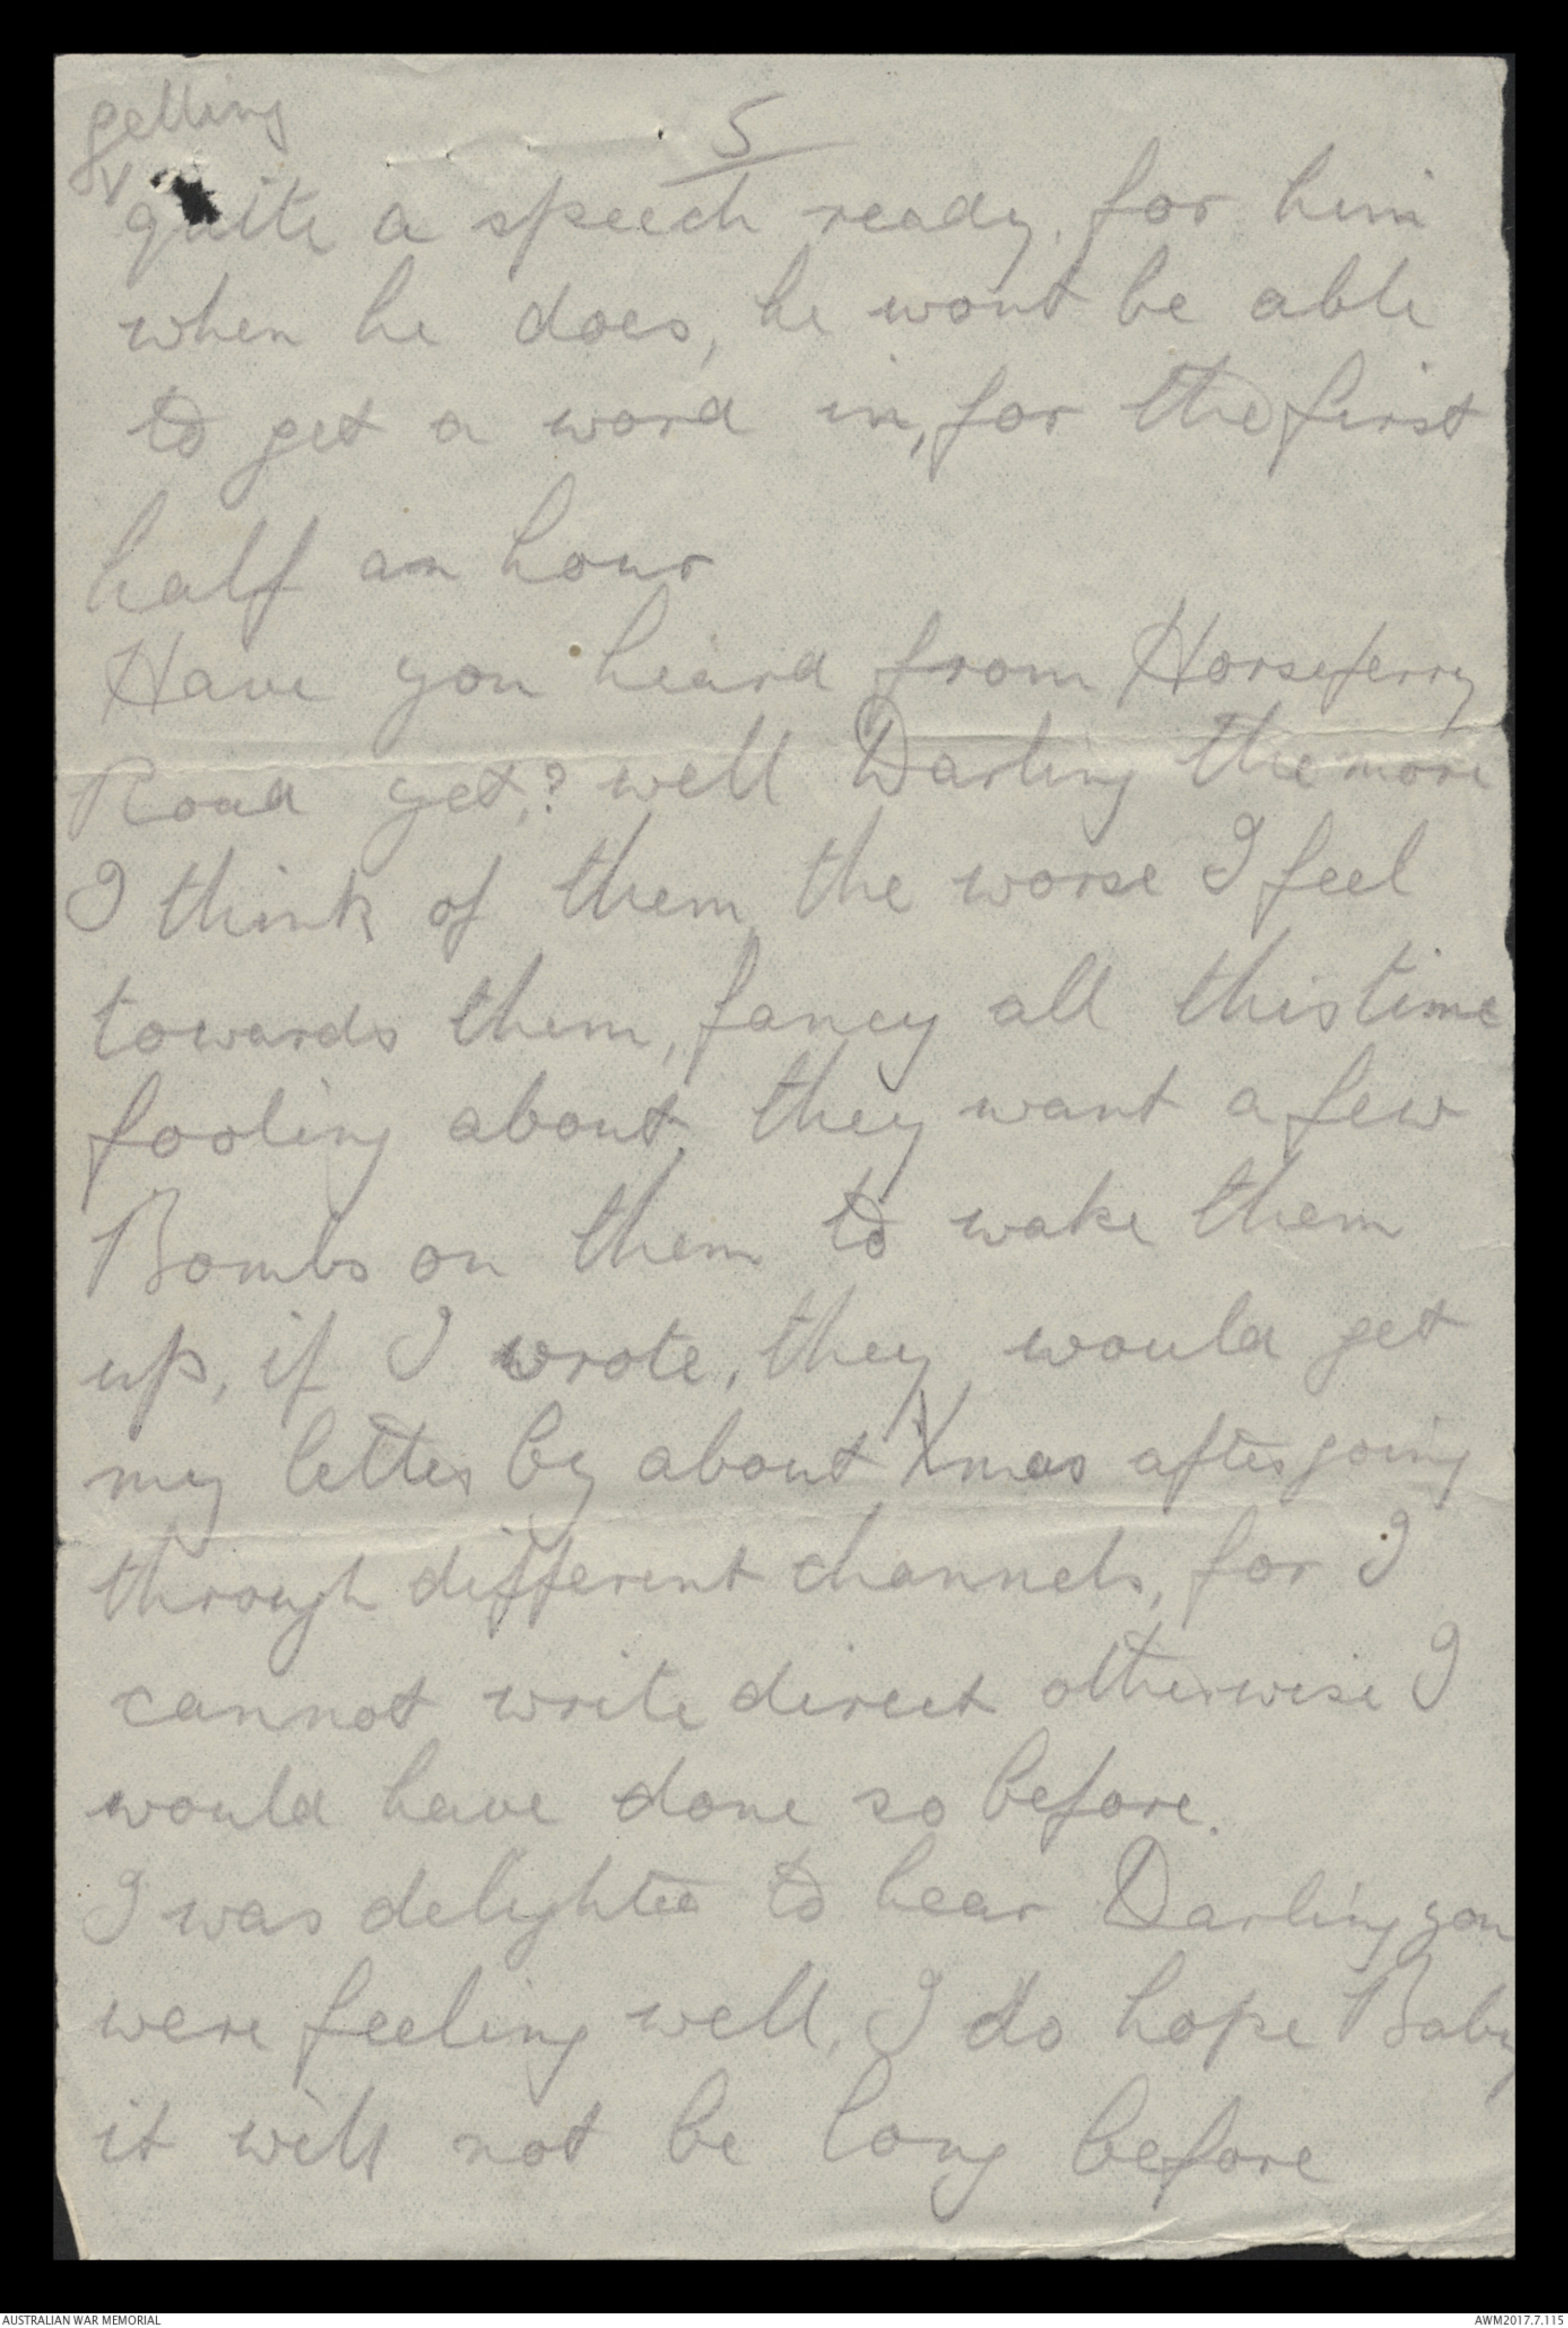 5
getting
quite a speech ready, for him
when he does, he wont be able
to get a word in, for the first
half an hour
Have you heard from Horseferry
Road yet,? well Darling the more
I think of them, the worse I feel
towards them, fancy all this time
fooling about, they want a few
Bombs on them to wake them
up, if I wrote, they would get
my letter by about Xmas after going
through different channels, for I
cannot write direct otherwise I
would have done so before.
I was delighted to hear Darling you
were feeling well, I do hope Baby
it will not be long before
AUSTRALIAN WAR MEMORIAL
AWM2017.7.115